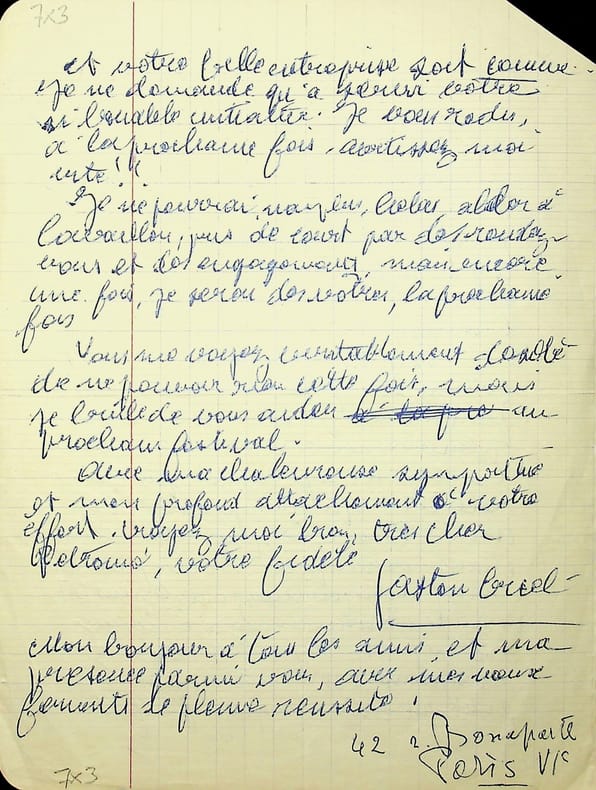 7x3
et votre belle entreprise soit connue.
Je ne demande qu'à servir votre
si louable initiative. Je vous redis,
à la prochaine fois. avertissez moi
vite !!
Je ne pourrai, non plus, hélas, aller à
Cavaillon, pris de court par des rendez-
vous et des engagements, mais encore
une fois, je serai des vôtres, la prochaine
fois
Vous me voyez véritablement désolé
de ne pouvoir rien cette fois, mais
je brûle de vous aider à la pro au
prochain festival.
Avec ma chaleureuse sympathie
et mon profond attachement à votre
effort. voyez moi bien, très cher
votre fidèle
Gaston Criel
Mon bonjour à tous les amis, et ma
présence parmi vous, avec mes voeux
fervents de pleine réussite.
42 r. Bonaparte
Paris VIe
7x3